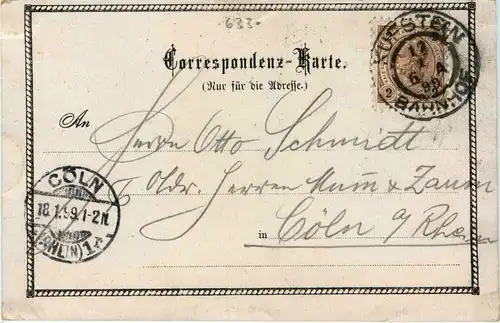 633.
Correspondenz-Karte.
(Nur für die Adresse.)
KUFSTEIN
BAHNHOF
2
An
Herrn Otto Schmidt
Herren Mum & Zanon
in Cöln a/Rhein
CÖLN
18.1.99.1-2N.
(RHEIN) 1